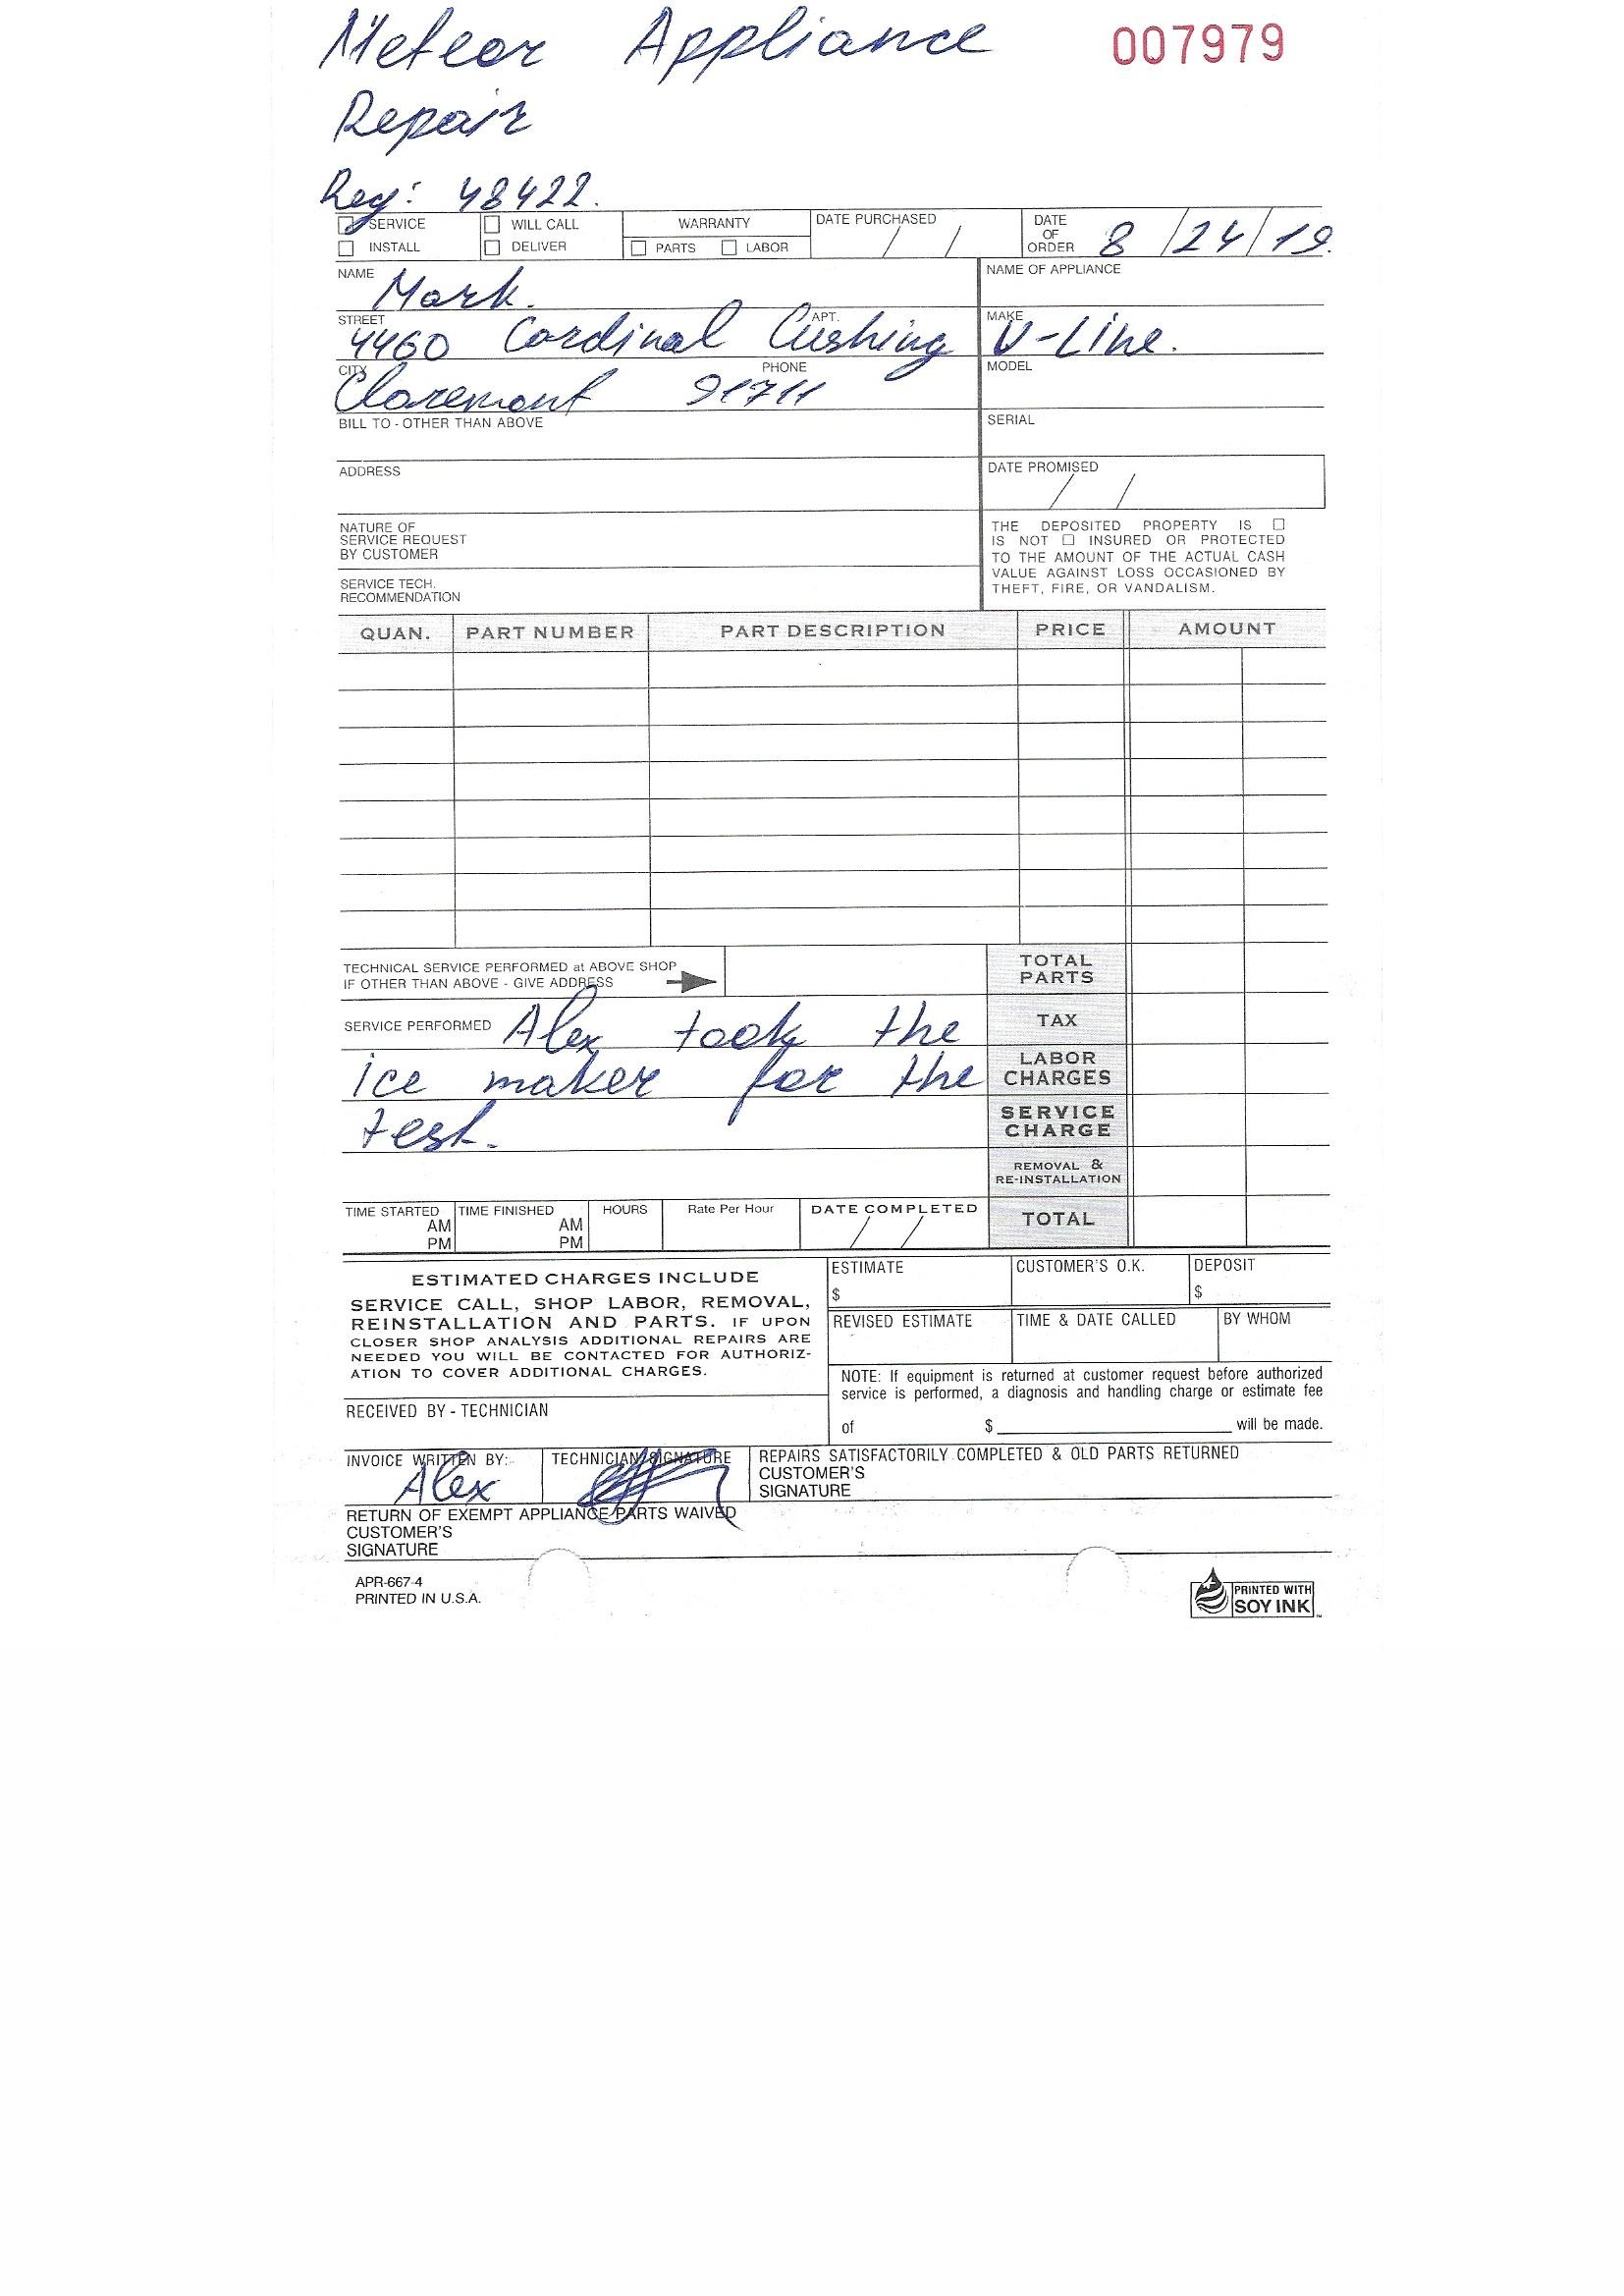 Meteor Appliance 007979
Repair
Reg: 48422.
SERVICE WILL CALL WARRANTY DATE PURCHASED DATE OF ORDER 8/24/19.
INSTALL DELIVER PARTS LABOR / /
NAME Mark. NAME OF APPLIANCE
STREET 4460 Cardinal Cushing APT. MAKE U-Line.
CITY Claremont 91711 PHONE MODEL
BILL TO - OTHER THAN ABOVE SERIAL
ADDRESS DATE PROMISED / /
NATURE OF
SERVICE REQUEST
BY CUSTOMER
SERVICE TECH.
RECOMMENDATION
THE DEPOSITED PROPERTY IS ☐
IS NOT ☐ INSURED OR PROTECTED
TO THE AMOUNT OF THE ACTUAL CASH
VALUE AGAINST LOSS OCCASIONED BY
THEFT, FIRE, OR VANDALISM.
QUAN. PART NUMBER PART DESCRIPTION PRICE AMOUNT
TECHNICAL SERVICE PERFORMED at ABOVE SHOP
IF OTHER THAN ABOVE - GIVE ADDRESS
TOTAL
PARTS
SERVICE PERFORMED Alex took the
TAX
ice maker for the
LABOR
CHARGES
test.
SERVICE
CHARGE
REMOVAL &
RE-INSTALLATION
TIME STARTED AM PM TIME FINISHED AM PM HOURS Rate Per Hour DATE COMPLETED / / TOTAL
ESTIMATED CHARGES INCLUDE
SERVICE CALL, SHOP LABOR, REMOVAL,
REINSTALLATION AND PARTS. IF UPON
CLOSER SHOP ANALYSIS ADDITIONAL REPAIRS ARE
NEEDED YOU WILL BE CONTACTED FOR AUTHORIZ-
ATION TO COVER ADDITIONAL CHARGES.
ESTIMATE $ CUSTOMER'S O.K. DEPOSIT $
REVISED ESTIMATE TIME & DATE CALLED BY WHOM
NOTE: If equipment is returned at customer request before authorized
service is performed, a diagnosis and handling charge or estimate fee
of $ will be made.
RECEIVED BY - TECHNICIAN
INVOICE WRITTEN BY: Alex TECHNICIAN SIGNATURE REPAIRS SATISFACTORILY COMPLETED & OLD PARTS RETURNED
CUSTOMER'S
SIGNATURE
RETURN OF EXEMPT APPLIANCE PARTS WAIVED
CUSTOMER'S
SIGNATURE
APR-667-4
PRINTED IN U.S.A.
PRINTED WITH
SOY INK